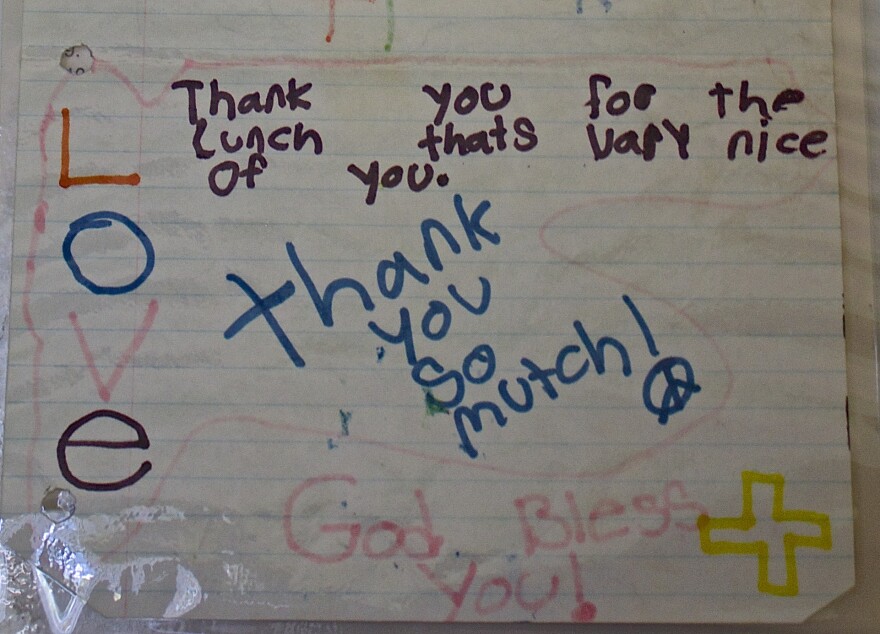 Thank you for the
Lunch thats vary nice
Of you.
L
O
V
e
Thank
you
so
mutch!
God Bless
you!